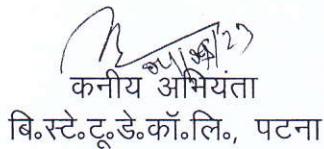 कनीय अभियंता
बि॰स्टे॰टू॰डे॰कॉ॰लि॰, पटना